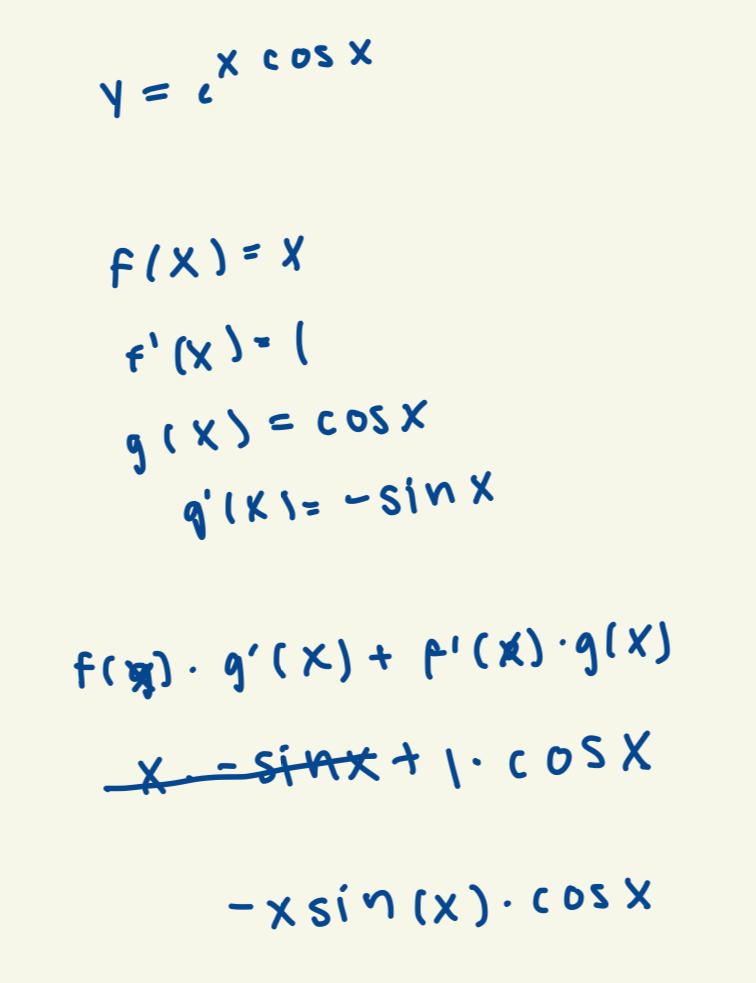 y = e^x cos x
f(x) = x
f'(x) = 1
g(x) = cos x
g'(x) = -sin x
f(x) · g'(x) + f'(x) · g(x)
x · -sin x + 1 · cos x
-x sin(x) · cos x